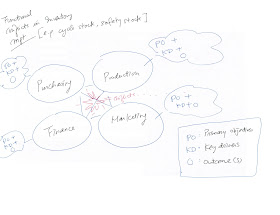 Functional
aspects on Inventory
mgt [e.g cycle stock, safety stock]
PO +
KD +
O
PO +
KD +
O
Purchasing
Production
Finance
Marketing
PO +
KD +
O
PO +
KD + O
PO - Primary objective
KD - Key drivers
O : outcome(s)